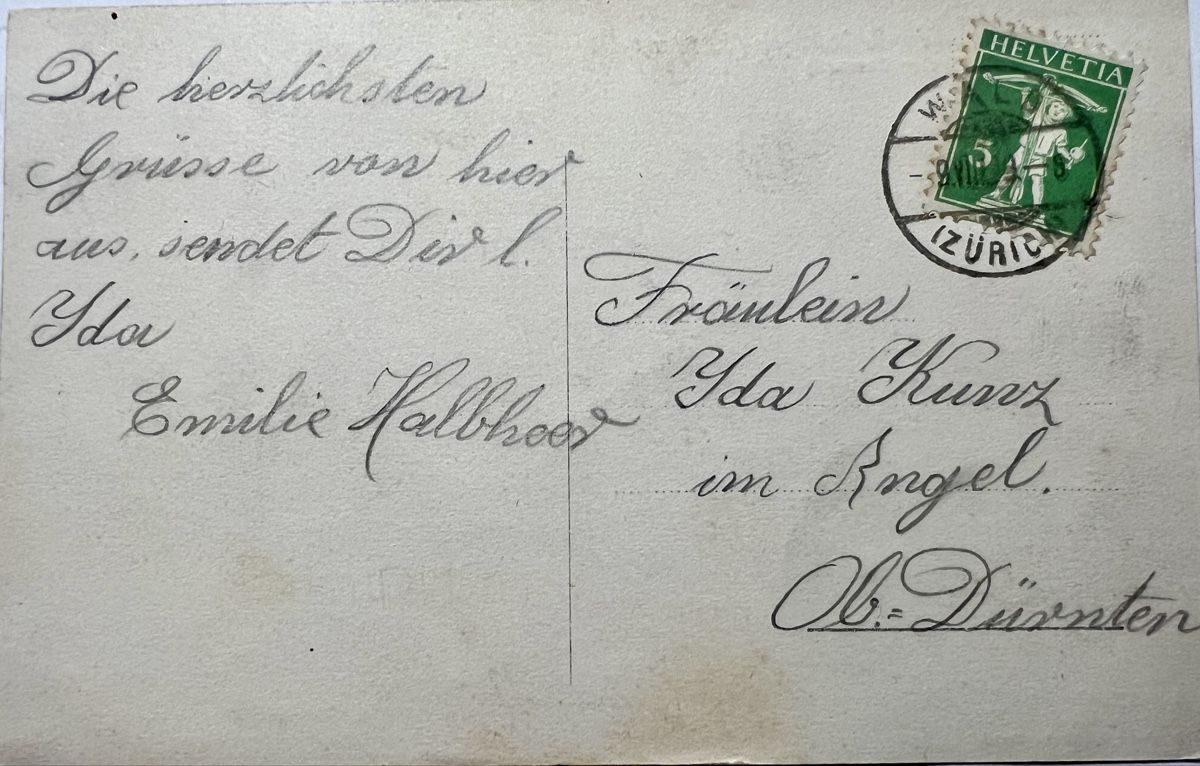 Die herzlichsten
Grüsse von hier
aus, sendet Dir l.
Ida
Emilie Halbheer
HELVETIA
5
WALD
(ZÜRICH)
Fräulein
Ida Kunz
im Angel.
Ob.=Dürnten